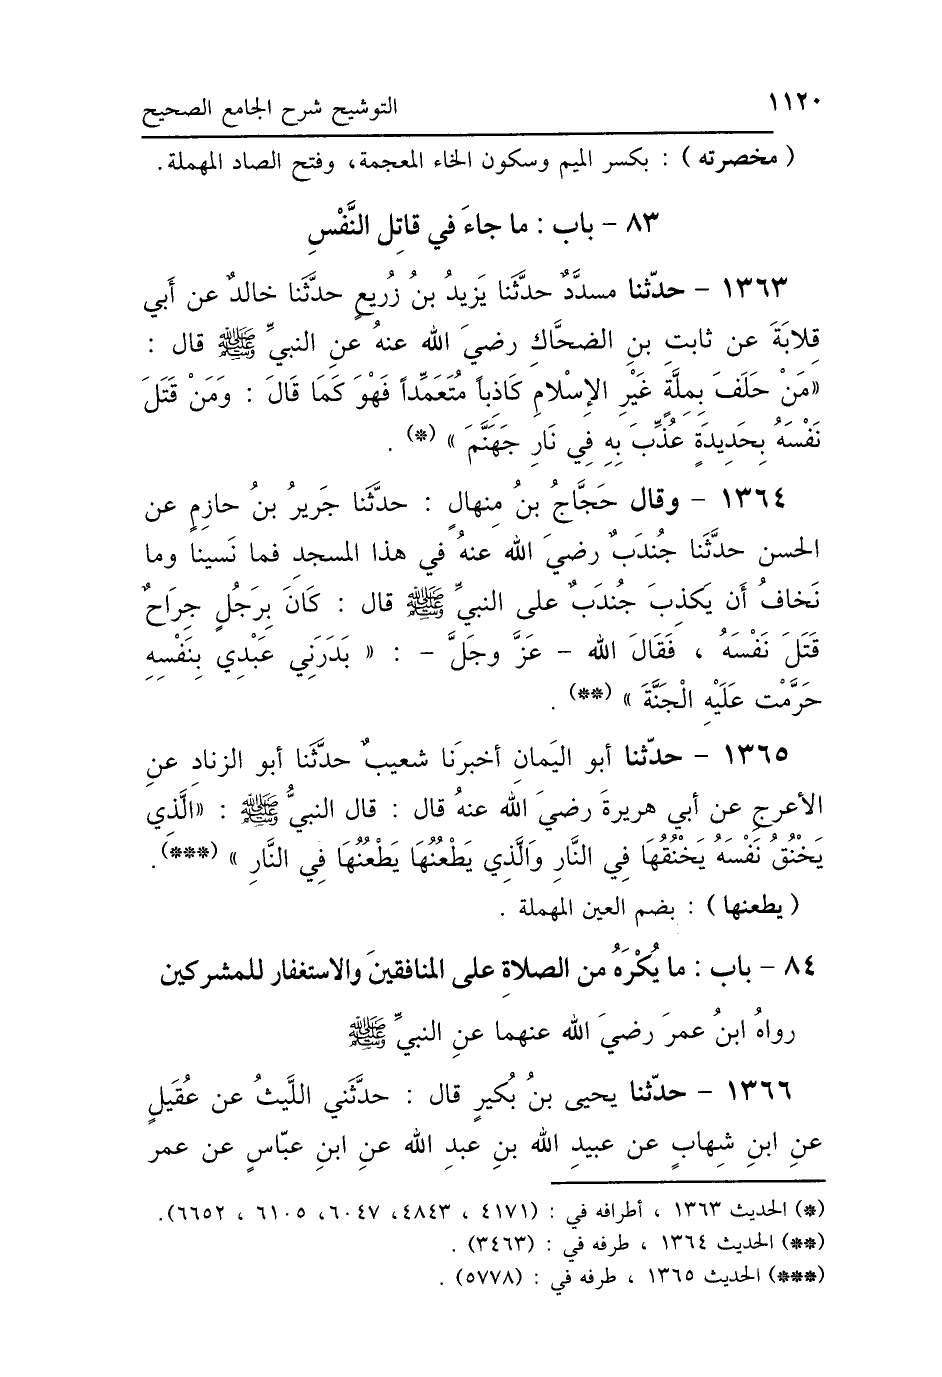 ١١٢٠ التوشيح شرح الجامع الصحيح
( مخصرته ) : بكسر الميم وسكون الخاء المعجمة، وفتح الصاد المهملة .
٨٣ - باب : ما جاءَ في قاتِل النَّفْسِ
١٣٦٣ - حدّثنا مسدَّدٌ حدَّثَنا يَزيدُ بنُ زُريعٍ حدَّثَنا خالدٌ عن أَبي
قِلابَةَ عن ثابتِ بنِ الضحَّاكِ رضيَ الله عنهُ عنِ النبيِّ ﷺ قال :
«مَنْ حَلَفَ بِملَّةٍ غَيْرِ الإِسْلامِ كَاذِباً مُتَعَمِّداً فَهْوَ كَمَا قَالَ : وَمَنْ قَتَلَ
نَفْسَهُ بِحَدِيدَةٍ عُذِّبَ بِهِ فِي نَارِ جَهَنَّمَ » (*) .
١٣٦٤ - وقال حَجَّاجُ بنُ مِنهالٍ : حدَّثَنا جَريرُ بنُ حازِمٍ عن
الحسن حدَّثَنا جُندَبٌ رضيَ الله عنهُ في هذا المسجدِ فما نَسينا وما
نَخافُ أن يَكذِبَ جُندَبٌ على النبيِّ ﷺ قال : كَانَ بِرَجُلٍ جِرَاحٌ
قَتَلَ نَفْسَهُ ، فَقَالَ الله - عَزَّ وجَلَّ - : « بَدَرَنِي عَبْدِي بِنَفْسِهِ
حَرَّمْت عَلَيْهِ الْجَنَّةَ » (**) .
١٣٦٥ - حدّثنا أبو اليَمانِ أخبرَنا شعيبٌ حدَّثَنا أبو الزنادِ عنِ
الأعرجِ عن أبي هريرةَ رضيَ الله عنهُ قال : قال النبيُّ ﷺ : «الَّذِي
يَخْنُقُ نَفْسَهُ يَخْنُقُهَا فِي النَّارِ وَالَّذِي يَطْعُنُهَا يَطْعُنُهَا فِي النَّارِ » (***) .
( يطعنها ) : بضم العين المهملة .
٨٤ - باب : ما يُكْرَهُ من الصلاةِ على المنافقينَ والاستغفار للمشركين
رواهُ ابنُ عمرَ رضيَ الله عنهما عنِ النبيِّ ﷺ
١٣٦٦ - حدّثنا يحيى بنُ بُكيرٍ قال : حدَّثَني اللَّيثُ عن عُقَيلٍ
عنِ ابنِ شِهابٍ عن عبيدِ الله بنِ عبدِ الله عنِ ابنِ عبّاسٍ عن عمر
(*) الحديث ١٣٦٣ ، أطرافه في : (٤١٧١ ، ٤٨٤٣، ٦٠٤٧، ٦١٠٥ ، ٦٦٥٢).
(**) الحديث ١٣٦٤ ، طرفه في : (٣٤٦٣) .
(***) الحديث ١٣٦٥ ، طرفه في : (٥٧٧٨) .